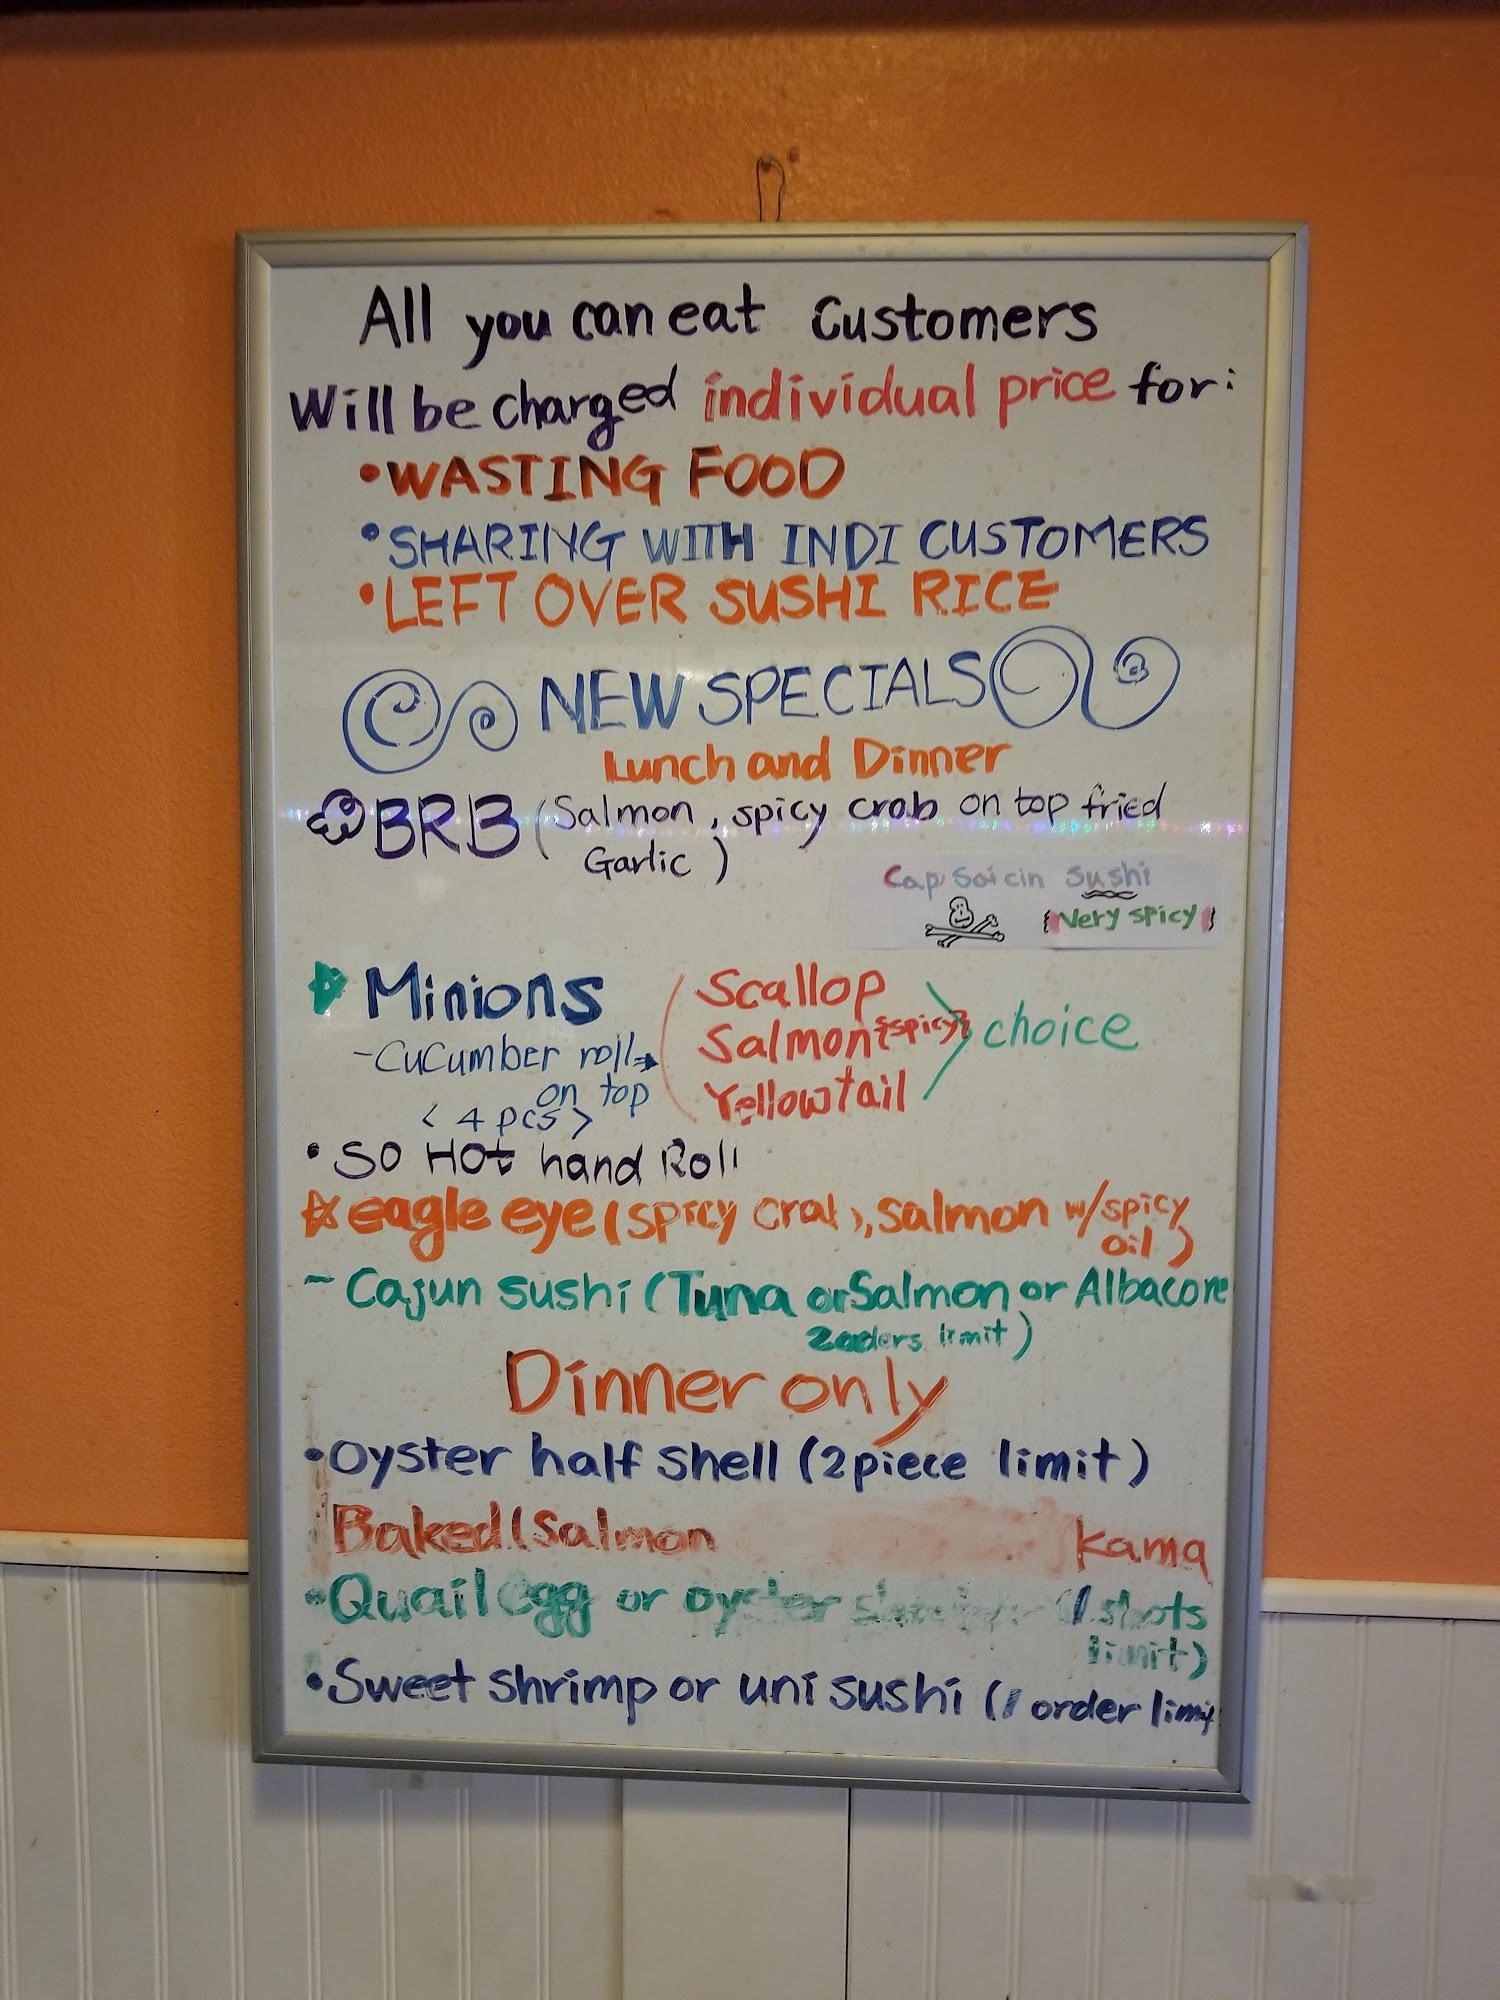 All you can eat Customers
Will be charged individual price for:
•WASTING FOOD
•SHARING WITH INDI CUSTOMERS
•LEFT OVER SUSHI RICE
NEW SPECIALS
Lunch and Dinner
BRB (Salmon, spicy crab on top fried
Garlic)
Capsaicin Sushi
{Very spicy}
Minions
-Cucumber roll
on top
< 4 pcs >
Scallop
Salmon {spicy}
Yellowtail
choice
• SO HOt hand Roll
eagle eye (spicy crab), salmon w/spicy
oil)
~ Cajun sushi (Tuna or Salmon or Albacore
2 oders limit)
Dinner only
•Oyster half shell (2 piece limit)
Baked (Salmon Kama
•Quail egg or oyster shots
limit)
•Sweet shrimp or uni sushi (1 order limit